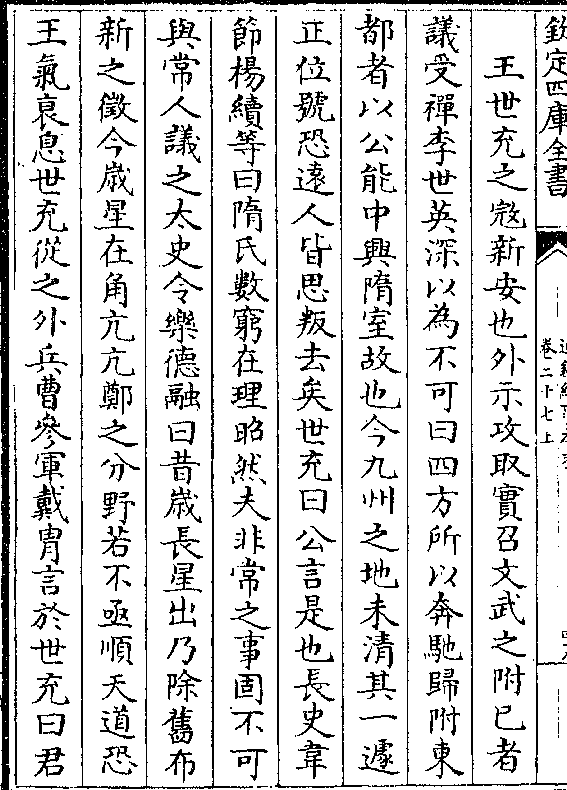 欽定四庫全書
卷二十七上
王世充之㓂新安也外示攻取實召文武之附已者
議受禪李世英深以為不可曰四方所以奔馳歸附東
都者以公能中興隋室故也今九州之地未清其一遽
正位號恐逺人皆思叛去矣世充曰公言是也長史韋
節楊續等曰隋氏數窮在理昭然夫非常之事固不可
與常人議之太史令樂德融曰昔歳長星出乃除舊布
新之徵今歳星在角亢亢鄭之分野若不亟順天道恐
王氣衰息世充從之外兵曹參軍戴胄言於世充曰君